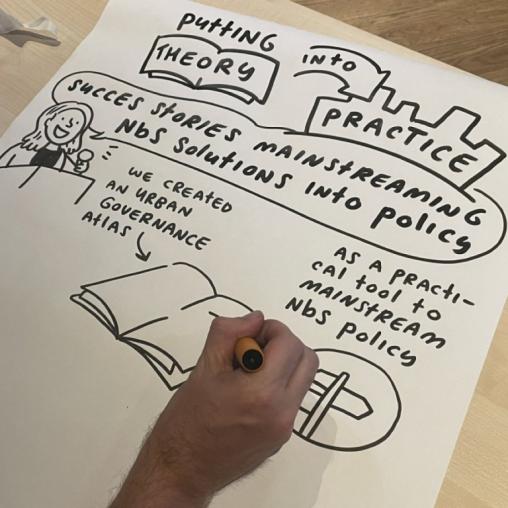 PUTTING
THEORY
INTO
PRACTICE
SUCCES STORIES MAINSTREAMING
NbS SOLUTIONS INTO POLICY
WE CREATED
AN URBAN
GOVERNANCE
ATLAS
AS A PRACTI-
CAL TOOL TO
MAINSTREAM
NbS POLICY